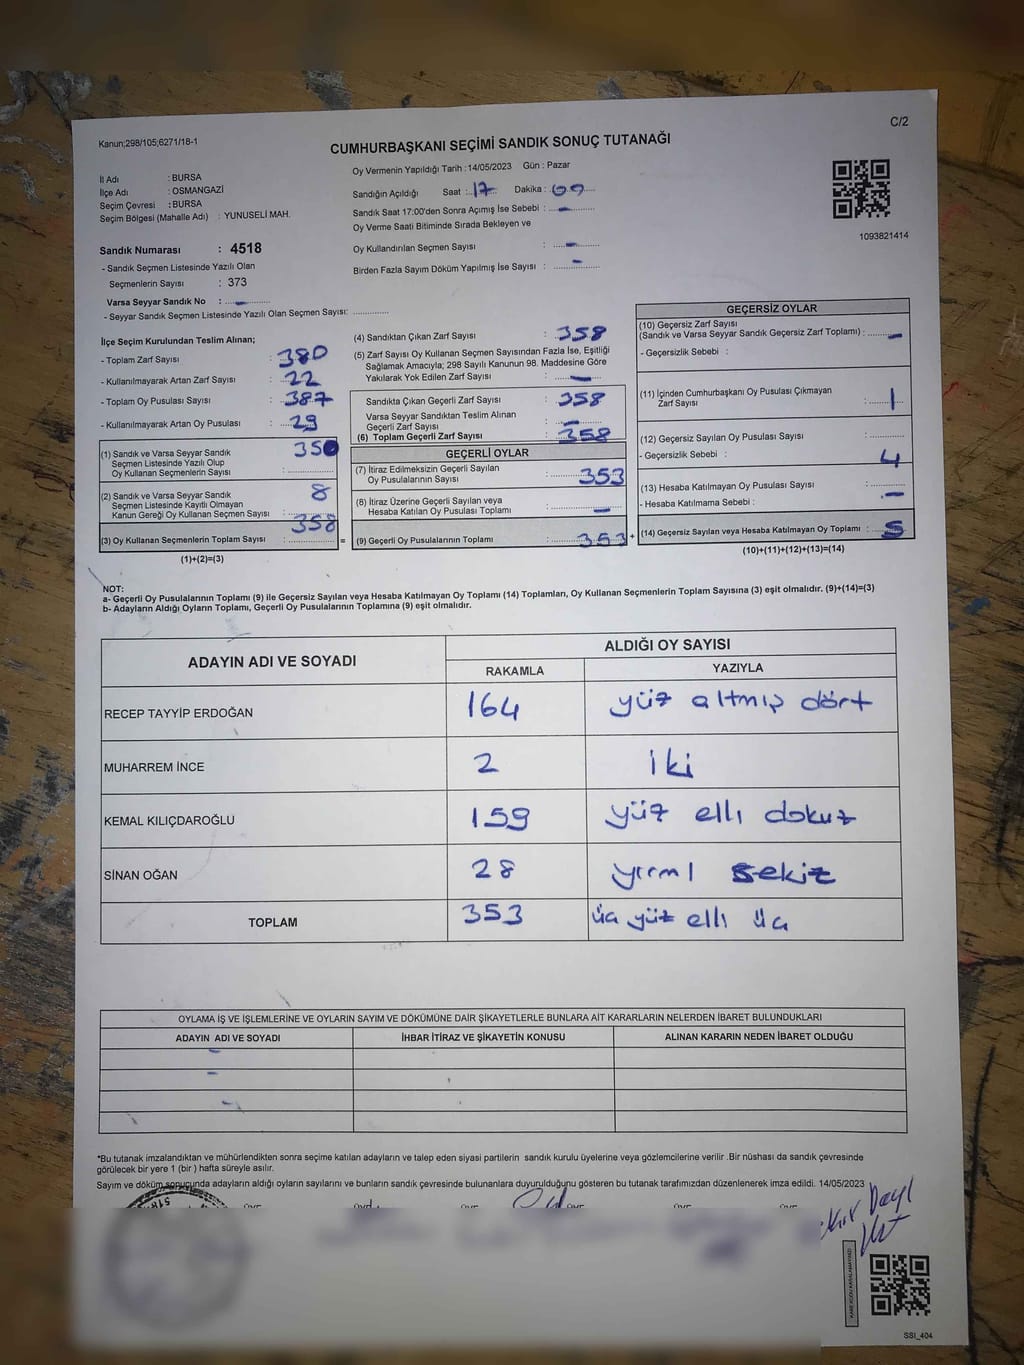 Kanun;298/105;6271/18-1
C/2
CUMHURBAŞKANI SEÇİMİ SANDIK SONUÇ TUTANAĞI
İl Adı : BURSA
İlçe Adı : OSMANGAZİ
Seçim Çevresi : BURSA
Seçim Bölgesi (Mahalle Adı) : YUNUSELİ MAH.
Oy Vermenin Yapıldığı Tarih : 14/05/2023 Gün : Pazar
Sandığın Açıldığı Saat : 17 Dakika : 00
Sandık Saat 17:00'den Sonra Açımış İse Sebebi : -
Oy Verme Saati Bitiminde Sırada Bekleyen ve
Oy Kullandırılan Seçmen Sayısı : -
Birden Fazla Sayım Döküm Yapılmış İse Sayısı : -
1093821414
Sandık Numarası : 4518
- Sandık Seçmen Listesinde Yazılı Olan
Seçmenlerin Sayısı : 373
Varsa Seyyar Sandık No : -
- Seyyar Sandık Seçmen Listesinde Yazılı Olan Seçmen Sayısı:
İlçe Seçim Kurulundan Teslim Alınan;
- Toplam Zarf Sayısı : 380
- Kullanılmayarak Artan Zarf Sayısı : 22
- Toplam Oy Pusulası Sayısı : 387
- Kullanılmayarak Artan Oy Pusulası : 29
(1) Sandık ve Varsa Seyyar Sandık
Seçmen Listesinde Yazılı Olup
Oy Kullanan Seçmenlerin Sayısı : 350
(2) Sandık ve Varsa Seyyar Sandık
Seçmen Listesinde Kayıtlı Olmayan
Kanun Gereği Oy Kullanan Seçmen Sayısı : 8
(3) Oy Kullanan Seçmenlerin Toplam Sayısı : 358
(1)+(2)=(3)
=
(4) Sandıktan Çıkan Zarf Sayısı : 358
(5) Zarf Sayısı Oy Kullanan Seçmen Sayısından Fazla İse, Eşitliği
Sağlamak Amacıyla; 298 Sayılı Kanunun 98. Maddesine Göre
Yakılarak Yok Edilen Zarf Sayısı : -
Sandıkta Çıkan Geçerli Zarf Sayısı : 358
Varsa Seyyar Sandıktan Teslim Alınan
Geçerli Zarf Sayısı : -
(6) Toplam Geçerli Zarf Sayısı : 358
GEÇERLİ OYLAR
(7) İtiraz Edilmeksizin Geçerli Sayılan
Oy Pusulalarının Sayısı : 353
(8) İtiraz Üzerine Geçerli Sayılan veya
Hesaba Katılan Oy Pusulası Toplamı : -
(9) Geçerli Oy Pusulalarının Toplamı : 353
+
GEÇERSİZ OYLAR
(10) Geçersiz Zarf Sayısı
(Sandık ve Varsa Seyyar Sandık Geçersiz Zarf Toplamı) : -
- Geçersizlik Sebebi :
(11) İçinden Cumhurbaşkanı Oy Pusulası Çıkmayan
Zarf Sayısı : 1
(12) Geçersiz Sayılan Oy Pusulası Sayısı :
- Geçersizlik Sebebi : 4
(13) Hesaba Katılmayan Oy Pusulası Sayısı :
- Hesaba Katılmama Sebebi : -
(14) Geçersiz Sayılan veya Hesaba Katılmayan Oy Toplamı : 5
(10)+(11)+(12)+(13)=(14)
NOT:
a- Geçerli Oy Pusulalarının Toplamı (9) ile Geçersiz Sayılan veya Hesaba Katılmayan Oy Toplamı (14) Toplamları, Oy Kullanan Seçmenlerin Toplam Sayısına (3) eşit olmalıdır. (9)+(14)=(3)
b- Adayların Aldığı Oyların Toplamı, Geçerli Oy Pusulalarının Toplamına (9) eşit olmalıdır.
ADAYIN ADI VE SOYADI ALDIĞI OY SAYISI
RAKAMLA YAZIYLA
RECEP TAYYİP ERDOĞAN 164 yüz altmış dört
MUHARREM İNCE 2 iki
KEMAL KILIÇDAROĞLU 159 yüz elli dokuz
SİNAN OĞAN 28 yirmi sekiz
TOPLAM 353 üç yüz elli üç
OYLAMA İŞ VE İŞLEMLERİNE VE OYLARIN SAYIM VE DÖKÜMÜNE DAİR ŞİKAYETLERLE BUNLARA AİT KARARLARIN NELERDEN İBARET BULUNDUKLARI
ADAYIN ADI VE SOYADI İHBAR İTİRAZ VE ŞİKAYETİN KONUSU ALINAN KARARIN NEDEN İBARET OLDUĞU
*Bu tutanak imzalandıktan ve mühürlendikten sonra seçime katılan adayların ve talep eden siyasi partilerin sandık kurulu üyelerine veya gözlemcilerine verilir .Bir nüshası da sandık çevresinde
görülecek bir yere 1 (bir ) hafta süreyle asılır.
Sayım ve döküm sonucunda adayların aldığı oyların sayılarını ve bunların sandık çevresinde bulunanlara duyurulduğunu gösteren bu tutanak tarafımızdan düzenlenerek imza edildi. 14/05/2023
SSI_404